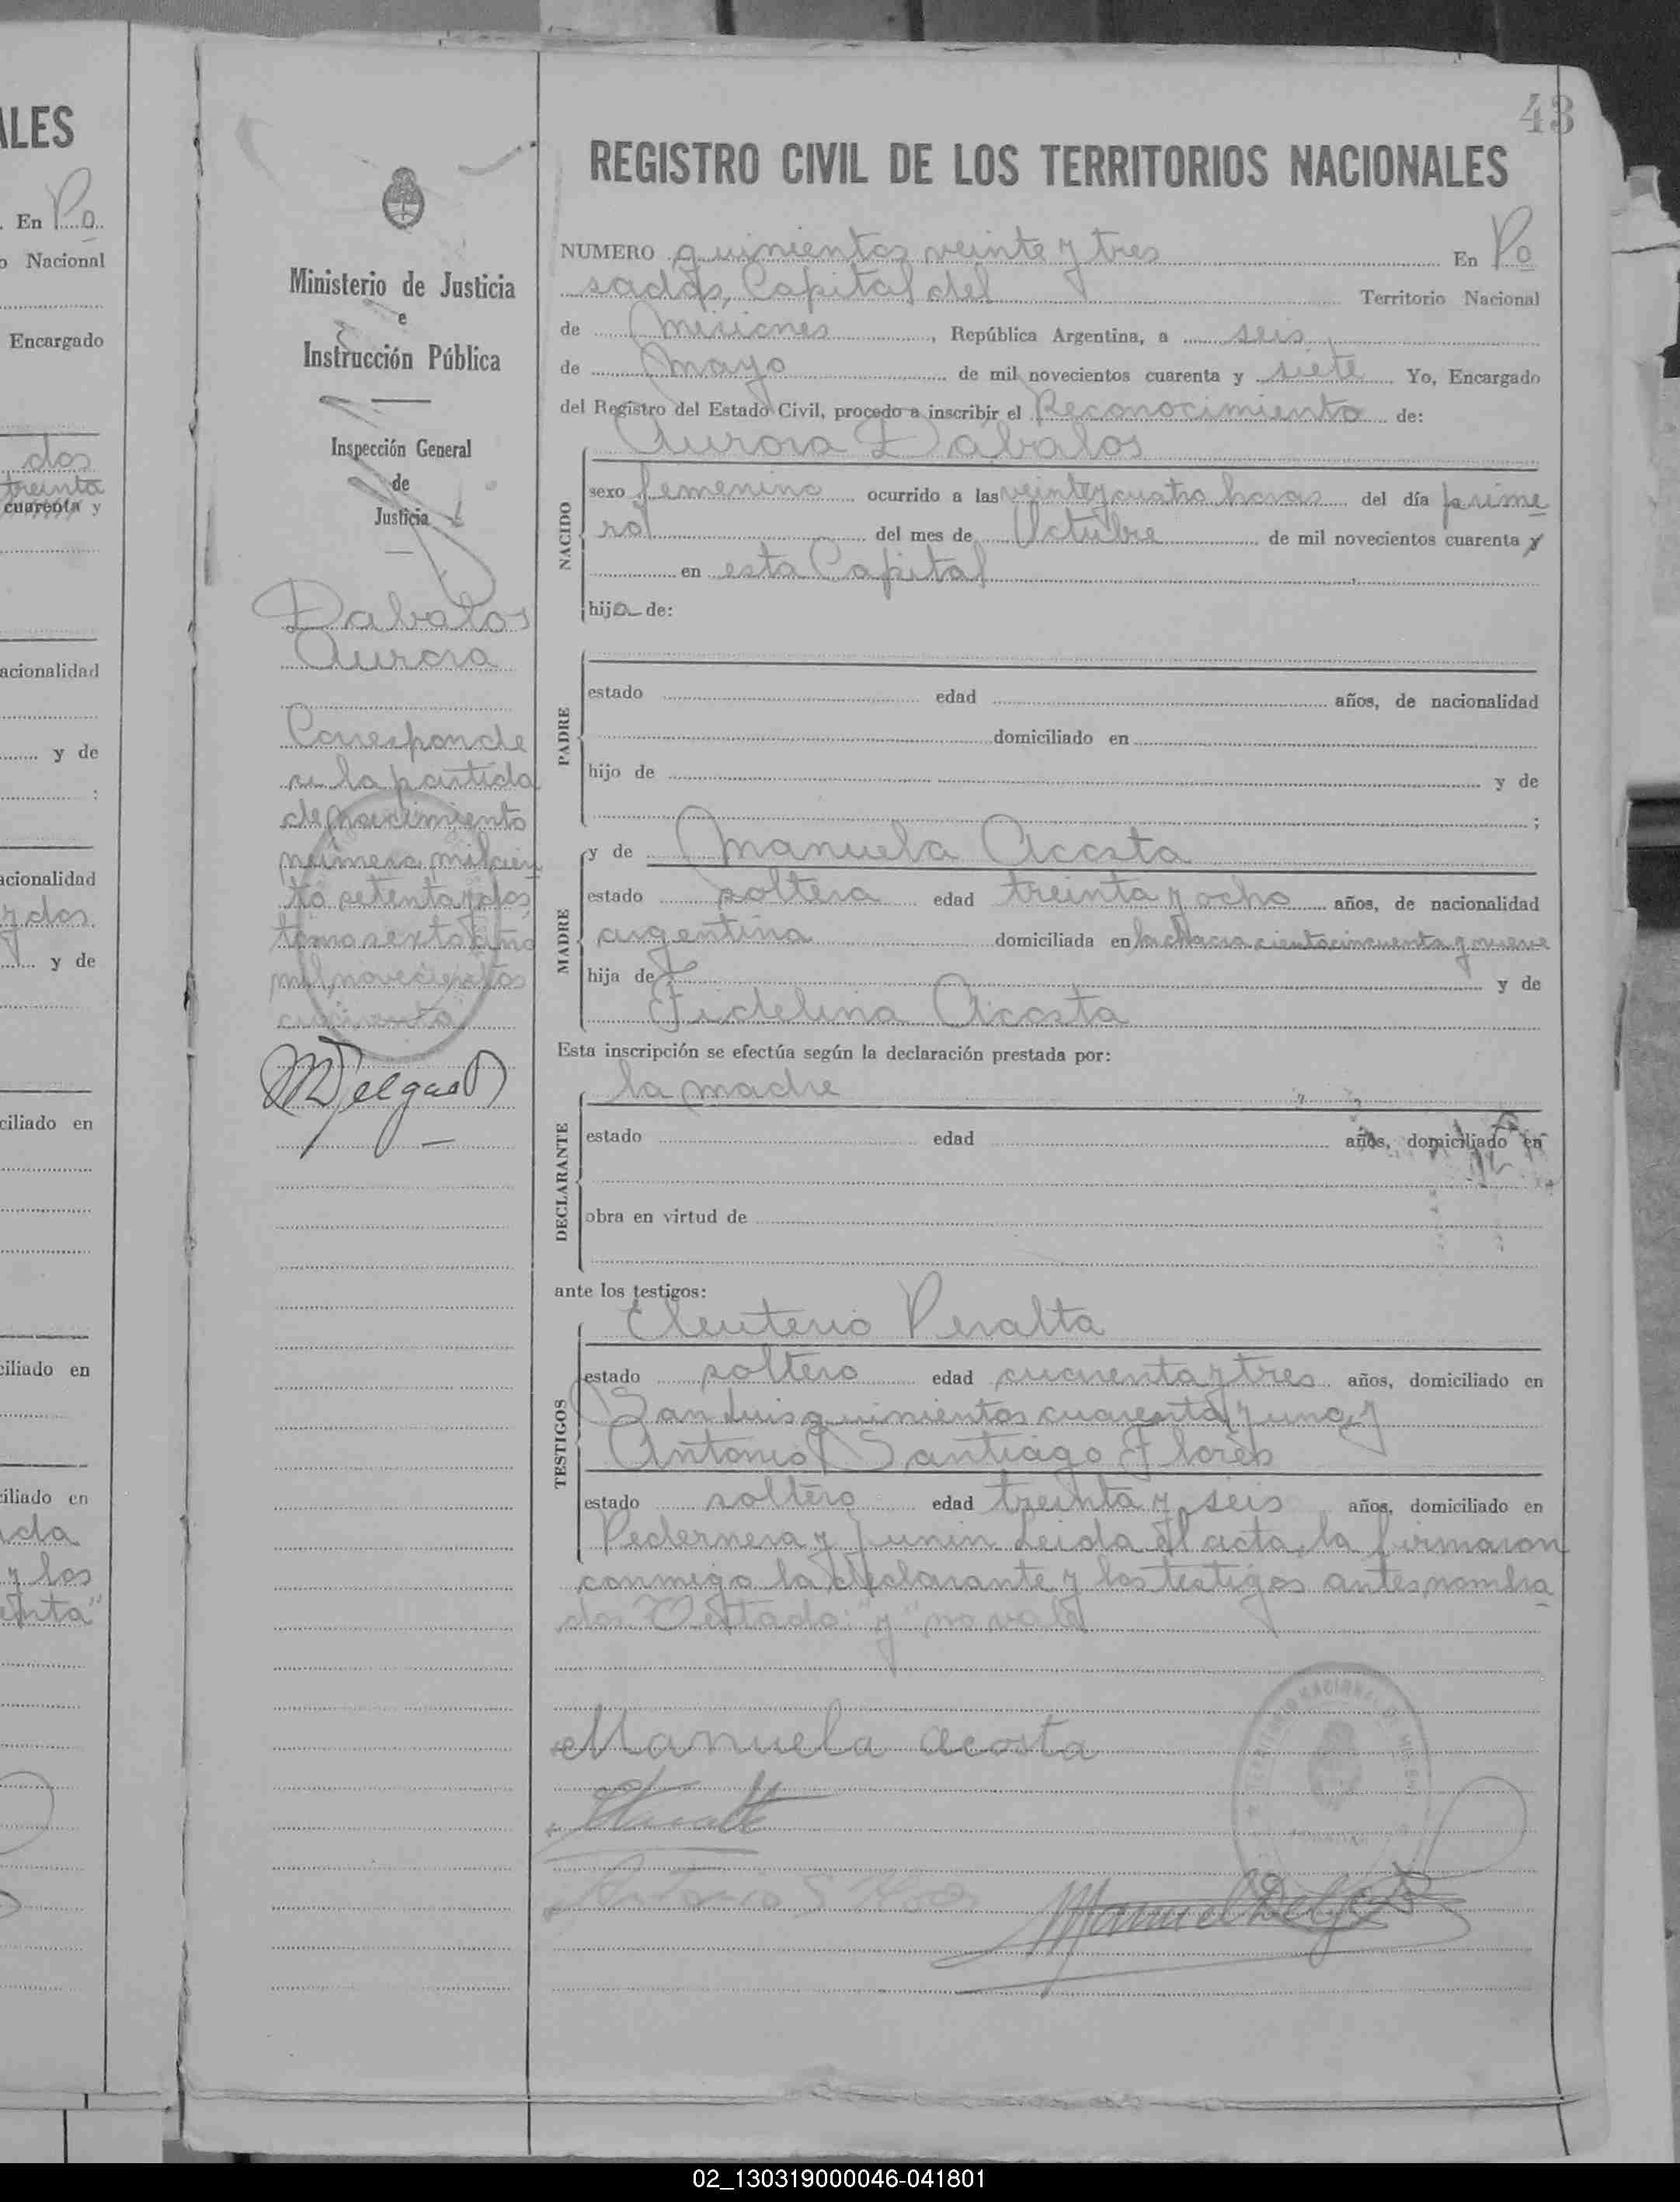 ALES
. En Po
o Nacional
Encargado
dos
treinta
cuarenta y
acionalidad
y de
:
acionalidad
y dos
y de
ciliado en
ciliado en
ciliado en
y los
43
Ministerio de Justicia
e
Instrucción Pública
Inspección General
de
Justicia
Dabalos
Aurora
Corresponde
a la partida
de nacimiento
número mil cien
to setenta y dos
tomo sexto año
mil novecientos
cuarenta
MDelgado
REGISTRO CIVIL DE LOS TERRITORIOS NACIONALES
NUMERO quinientos veinte y tres En Po
sadas, Capital del Territorio Nacional
de Misiones, República Argentina, a seis
de Mayo de mil novecientos cuarenta y siete Yo, Encargado
del Registro del Estado Civil, procedo a inscribir el Reconocimiento de:
Aurora Dabalos
NACIDO
sexo femenino ocurrido a las veinte y cuatro horas del día prime
ro del mes de Octubre de mil novecientos cuarenta y
en esta Capital
hija de:
PADRE
estado edad años, de nacionalidad
domiciliado en
hijo de y de
;
MADRE
y de Manuela Acosta
estado soltera edad treinta y ocho años, de nacionalidad
argentina domiciliada en la chacra ciento cincuenta y nueve
hija de y de
Fidelina Acosta
Esta inscripción se efectúa según la declaración prestada por:
la madre
DECLARANTE
estado edad años, domiciliado en
obra en virtud de
ante los testigos:
Eleuterio Peralta
TESTIGOS
estado soltero edad cuarenta y tres años, domiciliado en
San Luis quinientos cuarenta y uno, y
Antonio Santiago Flores
estado soltero edad treinta y seis años, domiciliado en
Pedernera y Junin Leida el acta, la firmaron
conmigo la declarante y los testigos antes nombra
dos Testado: "y" no vale
Manuela acosta
Antonio S Flores
Manuel Delgado
02_130319000046-041801